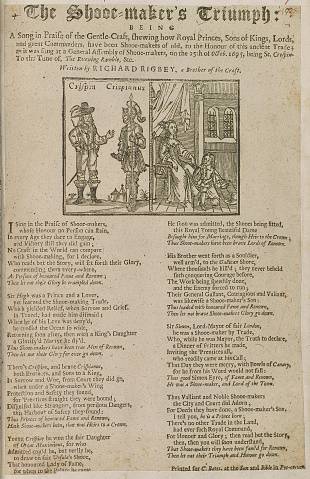 The Shooe-maker's Triumph:
BEING
A Song in Praise of the Gentle-Craft, shewing how Royal Princes, Sons of Kings, Lords,
and great Commanders, have been Shooe-makers of old, to the Honour of this ancient Trade;
as it was sung at a General Assembly of Shooe-makers, on the 25th of Octob. 1695, being St. Crispin
To the Tune of, The Evening Ramble, &c.
Written by RICHARD RIGBEY, a Brother of the Craft.
Crispin Crispianus
I Sing in the Praise of Shooe-makers,
whose Honour no Person can stain,
In every Age they dare to Engage,
and Victory still they did gain;
No Craft in the World can compare
with Shooe-making, for I declare,
Who reads but the Story, will set forth their Glory,
commending them every-where,
As Persons of honoured Fame and Renown,
Then let not their Glory be trampled down.
Sir Hugh was a Prince and a Lover,
yet learned the Shooe-making Trade,
Which yielded Relief, when Sorrow and Grief
is Friend, had made him dismaid;
When he of his Love was deny'd,
he crossed the Ocean so wide,
Returning soon after, then with a King's Daughter
a Glorious Martyr he dy'd.
Thus Shooe-makers have been true Men of Renown,
Then let not their Glory for ever go down.
There's Crispin, and brave Crispianus,
both Brethren, and Sons to a King,
In Sorrow and Woe, from Court they did go,
when under a Shooe-maker's Wing
Protection and Safety they found,
for Vestments straight they were bound;
Disguised like Strangers, from perilous Dangers,
this Harbour of safety they found:
Princes of honoured Fame and Renown,
Made Shooe-makers both, that was Heirs to a Crown.
Young Crispine he won the fair Daughter
of Great Maximinus, for who
Admitted could be, but verily he,
to draw on fair Ursula's Shooe,
That honoured Lady of Fame,
He soon was admitted, the Shooes being fitted,
this Royal Young Beautiful Dame
Besought him for Marriage, though Heir to the Crown;
Thus Shooe-makers have been brave Lords of Renown.
His Brother went forth as a Souldier,
well arm'd, to the Gallicar Shore,
Where thousands he kill'd; they never beheld
such conquering Courage before,
The Work being speedily done,
and the Enemy forced to run;
Their General Gallant, Couragious and Valiant,
was likewise a Shooe-maker's Son;
Then loaded with honoured Fame and Renown,
Then let not brave Shooe-makers Glory go down.
Sir Simon, Lord-Mayor of fair London,
he was a Shooe-maker by Trade,
Who, while he was Mayor, the Truth to declare,
a Dinner of Fritters he made,
Inviting the 'Prentices all,
who readily came at his Call;
That Day they were merry, with Bowls of Canary,
for he from his Word would not fall:
Thus good Simon Eyre, of Fame and Renown,
He was a Shooe-maker, and Lord of the Town.
Thus Valliant and Noble Shooe-makers
the City and Court did Adorn;
For Deeds they have done, a Shooe-maker's Son,
I tell you, he is a Prince born;
There's no other Trade in the Land,
had ever such Royal Command,
For Honour and Glory; then read but the Story,
then, then you will soon understand,
That Shooe-makers they have been fam'd for Renown,
Then let not their Triumph and Honour go down.
Printed for C. Bates, at the Sun and Bible in Pye-corner.